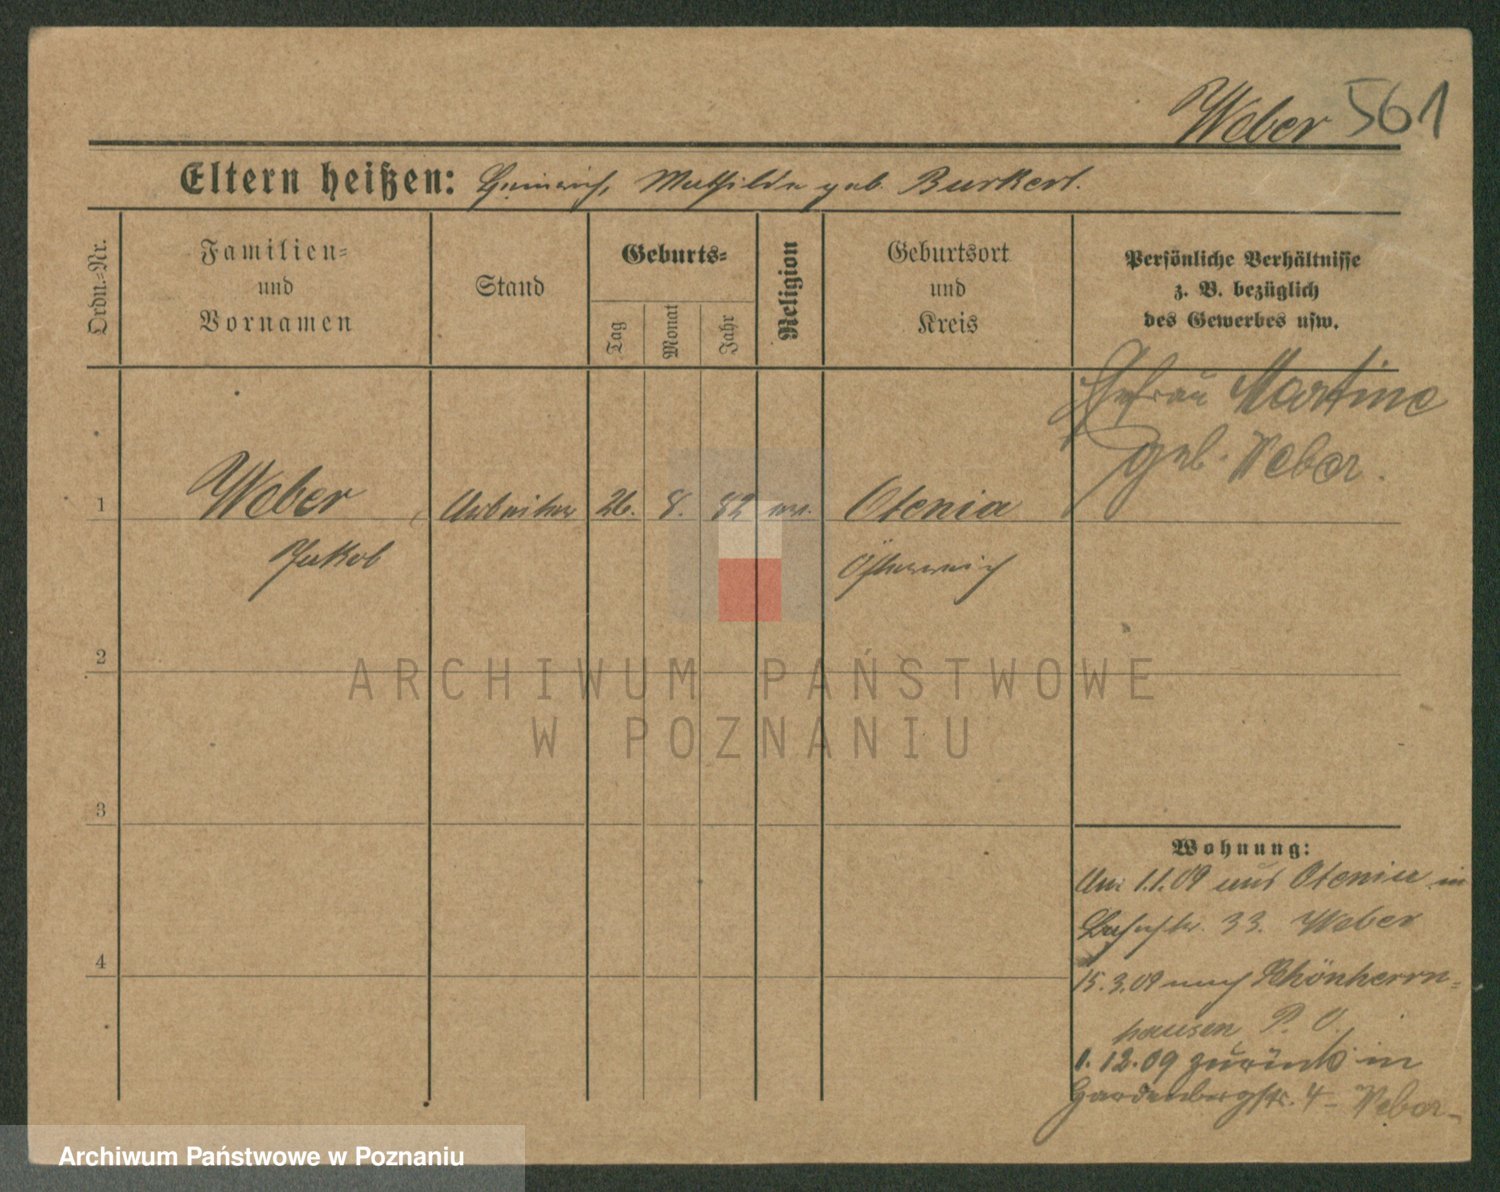 Weber 561
Eltern heißen: Heinrich, Mathilde geb. Burkert.
Ordn.-Nr.
Familien-
und
Vornamen
Stand
Geburts-
Tag
Monat
Jahr
Religion
Geburtsort
und
Kreis
Persönliche Verhältnisse
z. B. bezüglich
des Gewerbes usw.
Ehefrau Martine
geb. Weber.
1 Weber Arbeiter 26. 8. 82 Otenia
Jakob Österreich
2
3
4
Wohnung:
Am 1.1.09 aus Otenia in
33. Weber
15.3.09 nach Schönherrn-
hausen P. O.
1.12.09 zurück in
Hardenbergstr. 4 - Weber-
ARCHIWUM PAŃSTWOWE
W POZNANIU
Archiwum Państwowe w Poznaniu